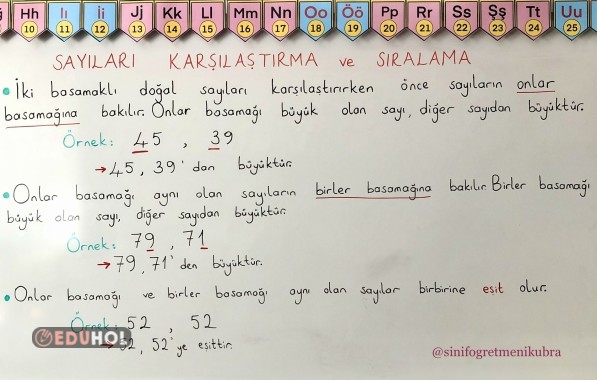 Hh Iı İi Jj Kk Ll Mm Nn Oo Öö Pp Rr Ss Şş Tt Uu
10 11 12 13 14 15 16 17 18 19 20 21 22 23 24 25
SAYILARI KARŞILAŞTIRMA ve SIRALAMA
• İki basamaklı doğal sayıları karşılaştırırken önce sayıların onlar
basamağına bakılır. Onlar basamağı büyük olan sayı, diğer sayıdan büyüktür.
Örnek: 45 , 39
→ 45, 39'dan büyüktür.
• Onlar basamağı aynı olan sayıların birler basamağına bakılır. Birler basamağı
büyük olan sayı, diğer sayıdan büyüktür.
Örnek: 79 , 71
→ 79, 71'den büyüktür.
• Onlar basamağı ve birler basamağı aynı olan sayılar birbirine eşit olur.
Örnek: 52 , 52
EDUHOL
→ 52, 52'ye eşittir.
@sinifogretmenikubra